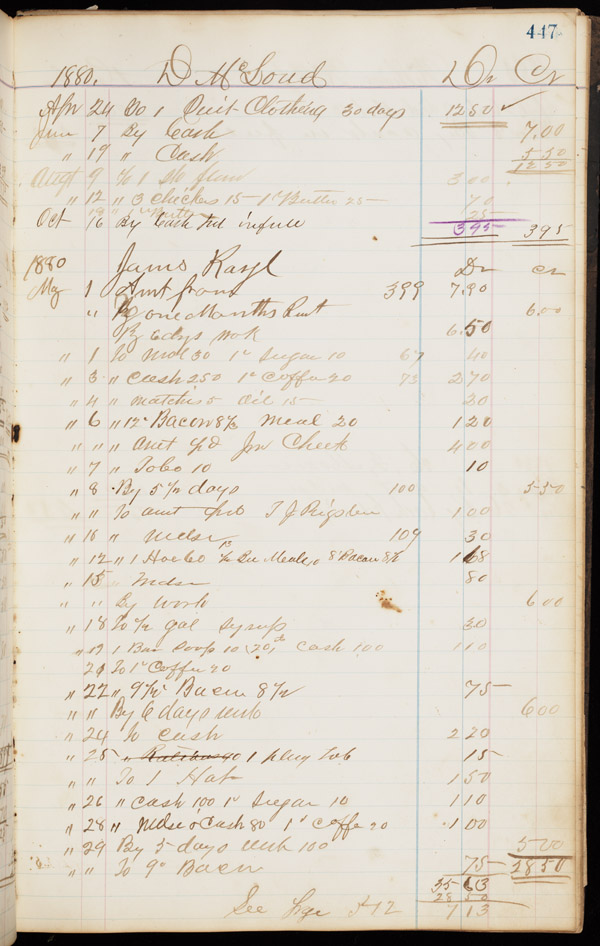 447
1880. D McLoud Dr Cr
Apr 24 To 1 Suit Clothing 30 days 12 50 ✓
Jun 7 By Cash 7.00
" 19 " Cash 5 50
12 50
Augt 9 To 1 3 00
" 12 " 3 Chickens 15 - 1# Butter 25 - 70
25
Oct 16 By Cash pd in full 3 95 3 95
1880 James Rasyl Dr Cr
My 1 Amt from 399 7.90
" By one Months Rent 6.00
By 6 days work 6.50
" 1 To Meal 30 1# Sugar 10 67 40
" 3 " Cash 250 1# Coffee 20 73 2 70
" 4 " matches 5 Oil 15 - 20
" 6 " 12# Bacon 8 1/3 Meal 20 1 20
" " " Amt pd Jno Cheek 4 00
" 7 " Tobco 10 10
" 8 By 5 1/2 days 100 5 50
" " To amt pd T J Rigsden 1 00
" 10 " Mdse 109 30
" 12 " 1 Hoe 60 1/2 Bu Meal 8# Bacon 8 1/2 1 68
" 15 " Mdse 80
" " By Work 6 00
" 18 To 1/2 gal syrup 30
" 19 1 Bar Soap 10 cash 100 1 10
20 To 1# Coffee 20
" 22 " 9 1/2# Bacon 8 1/2 75
" " By 6 days work 6 00
" 24 To Cash 2 20
" 25 " 1 plug Tob 15
" " To 1 Hat 1 50
" 26 " Cash 100 1# Sugar 10 1 10
" 28 " Mdse & Cash 80 1# Coffee 20 1 00
" 29 By 5 days work 100 5 00
" " To 9# Bacon 75 28 50
35 63
28 50
7 13
See Page 512